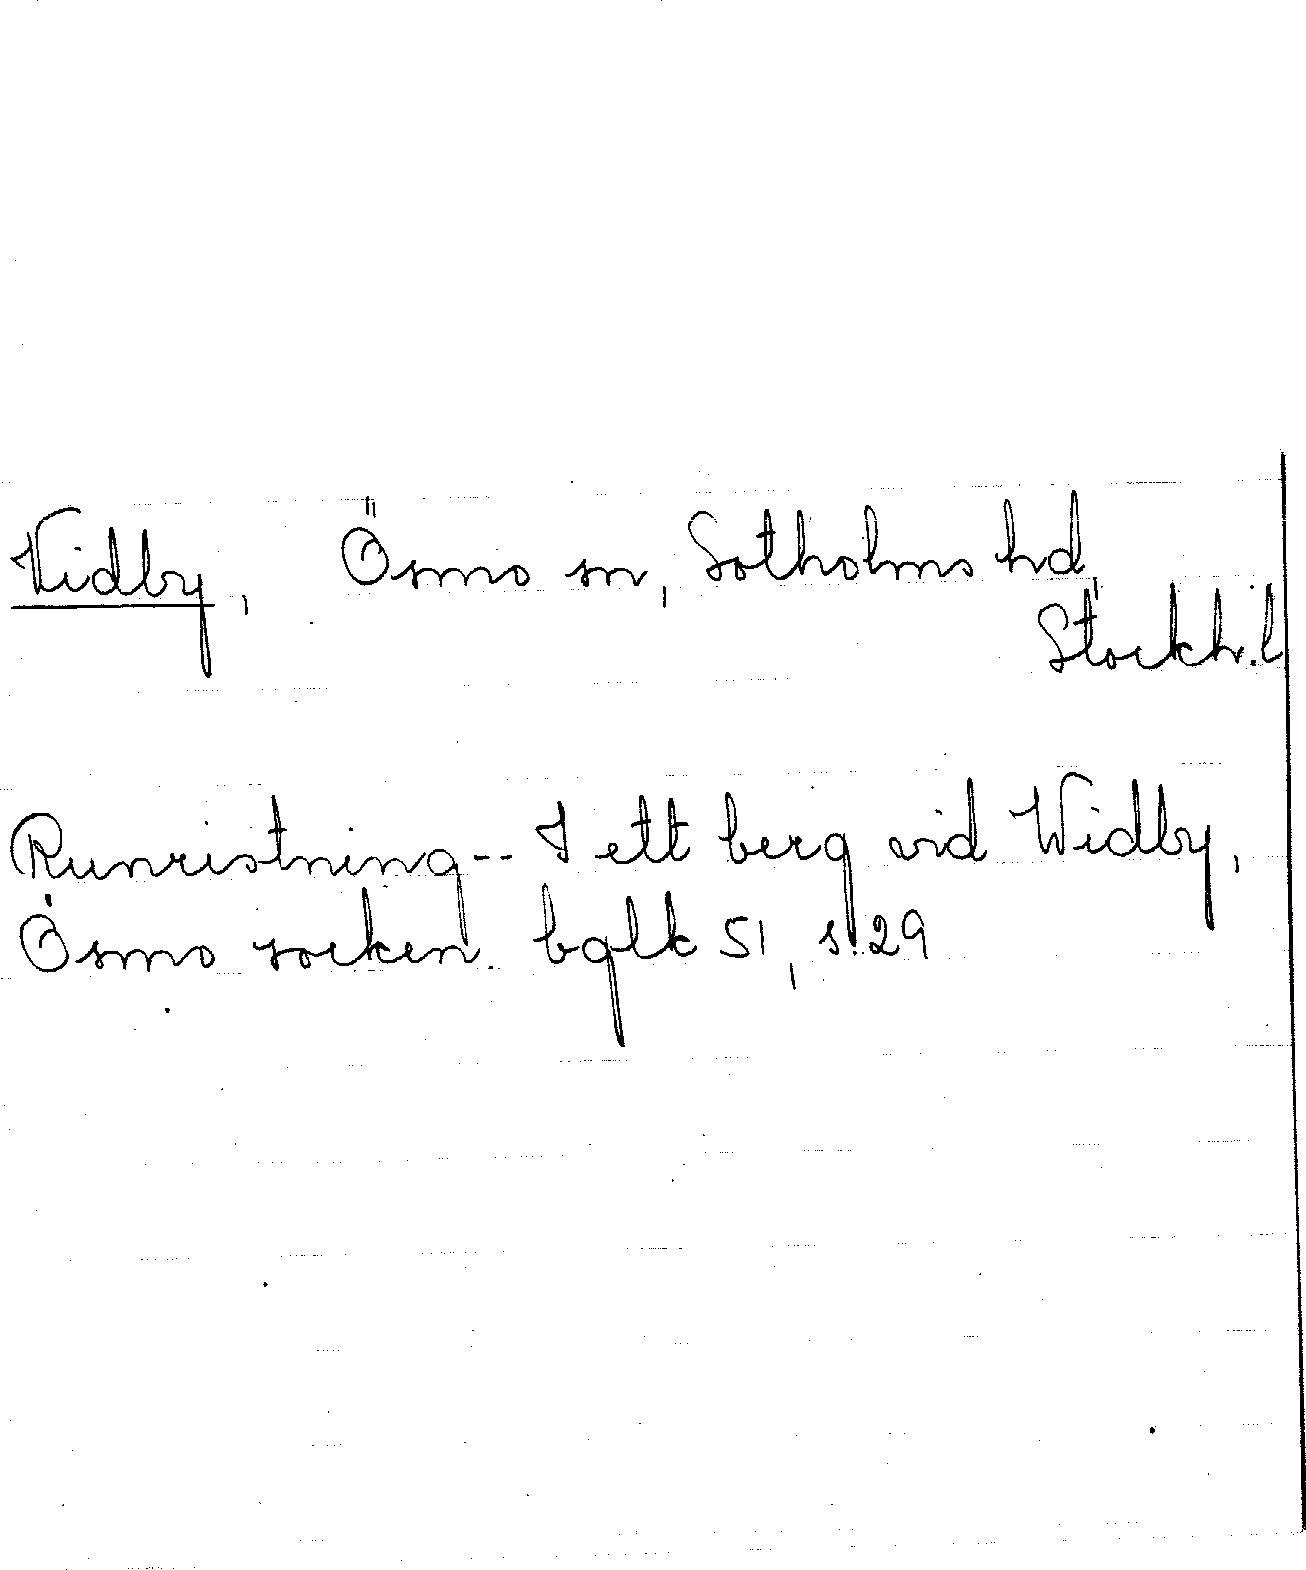 Vidby, Ösmo sn, Sotholms hd,
Stockh.l
Runristning-- I ett berg vid Widby,
Ösmo socken. bglk 51, s.29